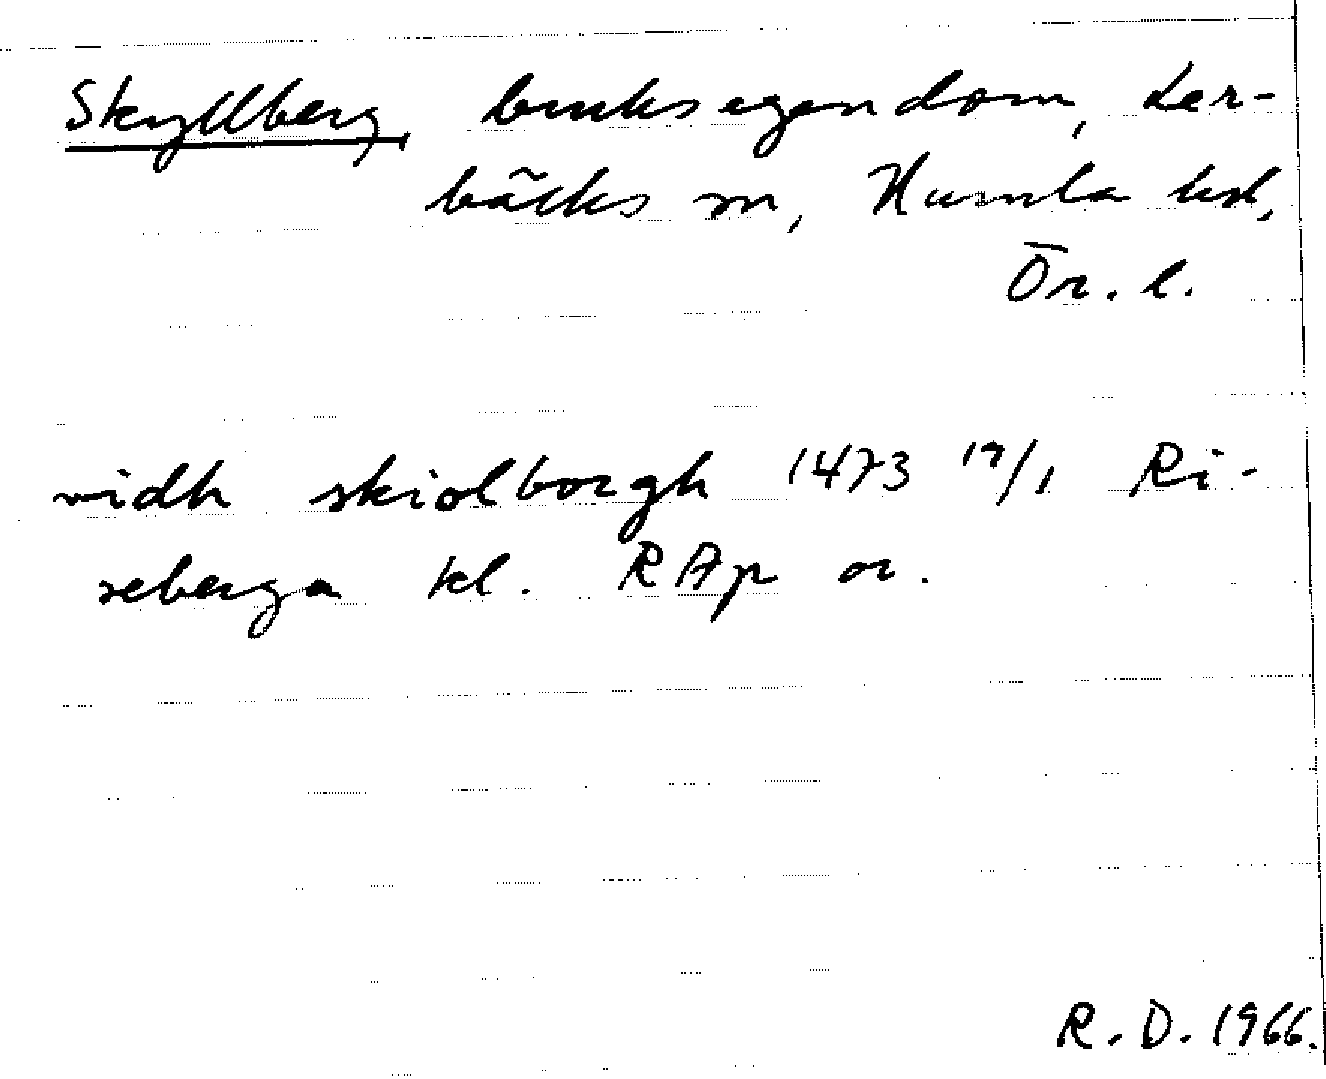 Skyllberg, bruksegendom, Ler-
bäcks sn, Kumla hd,
Ör. l.
widh skiolborgh 1473 19/1 Ri-
seberga kl. RAp or.
R. D. 1966.